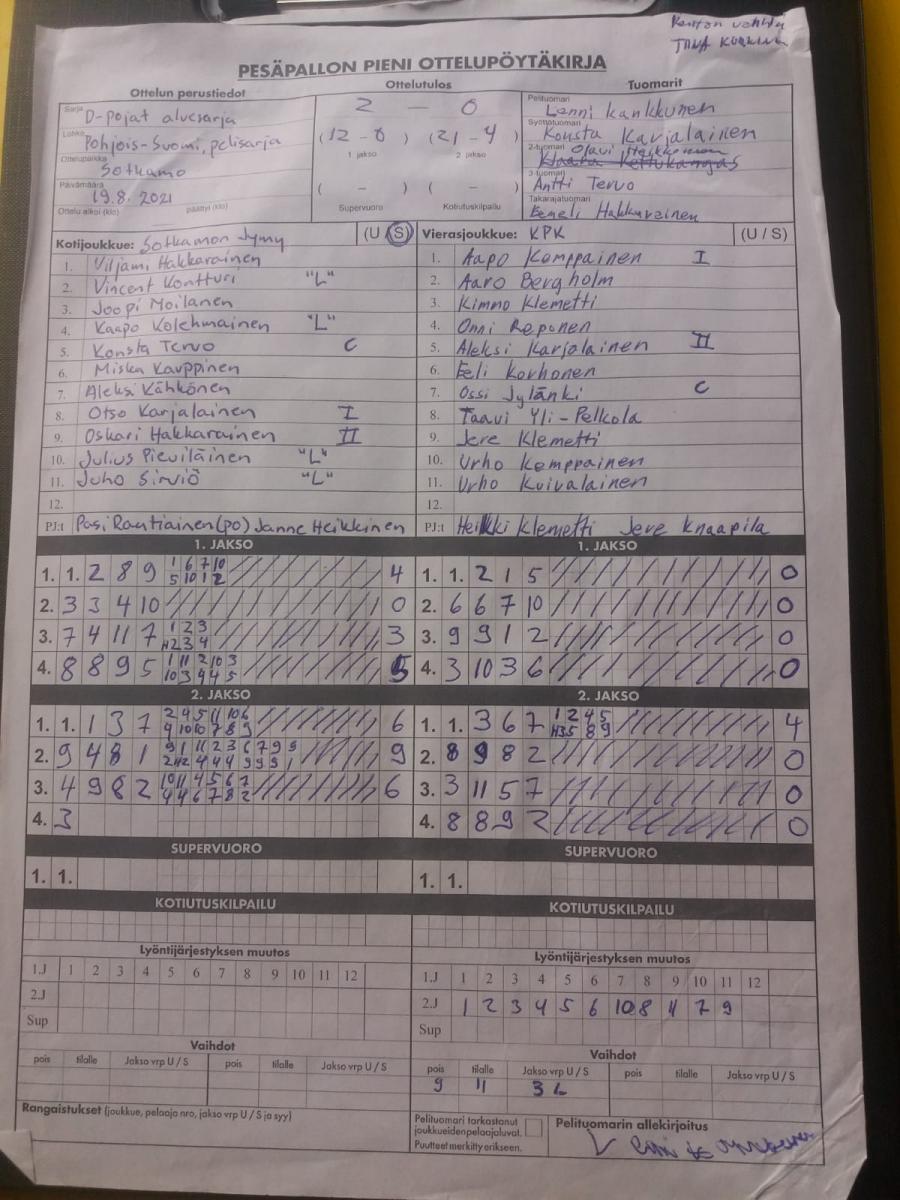 Kentän vahti
TIINA
PESÄPALLON PIENI OTTELUPÖYTÄKIRJA
Ottelun perustiedot Ottelutulos Tuomarit
Sarja D-pojat aluesarja 2 - 0 Pelituomari Lenni Kankkunen
Lohko Pohjois-Suomi, pelisarja (12 - 0) (21 - 4) Syöttötuomari Konsta Karjalainen
1 jakso 2 jakso 2-tuomari Olavi Heikkinen
Ottelupaikka Sotkamo
Päivämäärä 19.8. 2021 ( - ) ( - ) 3-tuomari Antti Tervo
Ottelu alkoi (klo) päättyi (klo) Supervuoro Kotiutuskilpailu Takarajatuomari Eemeli Hakkarainen
Kotijoukkue: Sotkamon Jymy (U / S) Vierasjoukkue: KPK (U / S)
1. Viljami Hakkarainen 1. Aapo Kemppainen I
2. Vincent Kontturi "L" 2. Aaro Bergholm
3. Joopi Moilanen 3. Kimmo Klemetti
4. Kaapo Kolehmainen "L" 4. Onni Reponen
5. Konsta Tervo C 5. Aleksi Karjalainen II
6. Miska Kauppinen 6. Eeli Korhonen
7. Aleksi Kähkönen 7. Ossi Jylänki C
8. Otso Karjalainen I 8. Taavi Yli-Pelkola
9. Oskari Hakkarainen II 9. Jere Klemetti
10. Julius Pieviläinen "L" 10. Urho Kemppainen
11. Juho Sirviö "L" 11. Urho Kuivalainen
12. 12.
PJ:t Pasi Rautiainen (PO) Janne Heikkinen PJ:t Heikki Klemetti Jere Knaapila
1. JAKSO 1. JAKSO
1. 1. 2 8 9 1 6 7 10 4 1. 1. 2 1 5 0
5 10 1 2
2. 3 3 4 10 0 2. 6 6 7 10 0
3. 7 4 11 7 1 2 3 3 3. 9 9 1 2 0
H2 3 4
4. 8 8 9 5 1 11 2 10 3 5 4. 3 10 3 6 0
10 3 4 4 5
2. JAKSO 2. JAKSO
1. 1. 1 3 7 2 4 5 11 10 6 6 1. 1. 3 6 7 1 2 4 5 4
4 10 10 7 8 9 H3 5 8 9
2. 9 4 8 1 9 1 11 2 3 6 7 9 9 9 2. 8 9 8 2 0
2 H2 4 4 4 9 9 9 1
3. 4 9 8 2 10 11 4 5 6 7 6 3. 3 11 5 7 0
4 4 6 7 8 2
4. 3 4. 8 8 9 2 0
SUPERVUORO SUPERVUORO
1. 1. 1. 1.
KOTIUTUSKILPAILU KOTIUTUSKILPAILU
Lyöntijärjestyksen muutos Lyöntijärjestyksen muutos
1.J 1 2 3 4 5 6 7 8 9 10 11 12 1.J 1 2 3 4 5 6 7 8 9 10 11 12
2.J 2.J 1 2 3 4 5 6 10 8 11 7 9
Sup Sup
Vaihdot Vaihdot
pois tilalle Jakso vrp U / S pois tilalle Jakso vrp U / S pois tilalle Jakso vrp U / S pois tilalle Jakso vrp U / S
9 11 3L
Rangaistukset (joukkue, pelaaja nro, jakso vrp U / S ja syy) Pelituomari tarkastanut joukkueidenpelaajaluvat. Pelituomarin allekirjoitus
Puutteet merkitty erikseen.